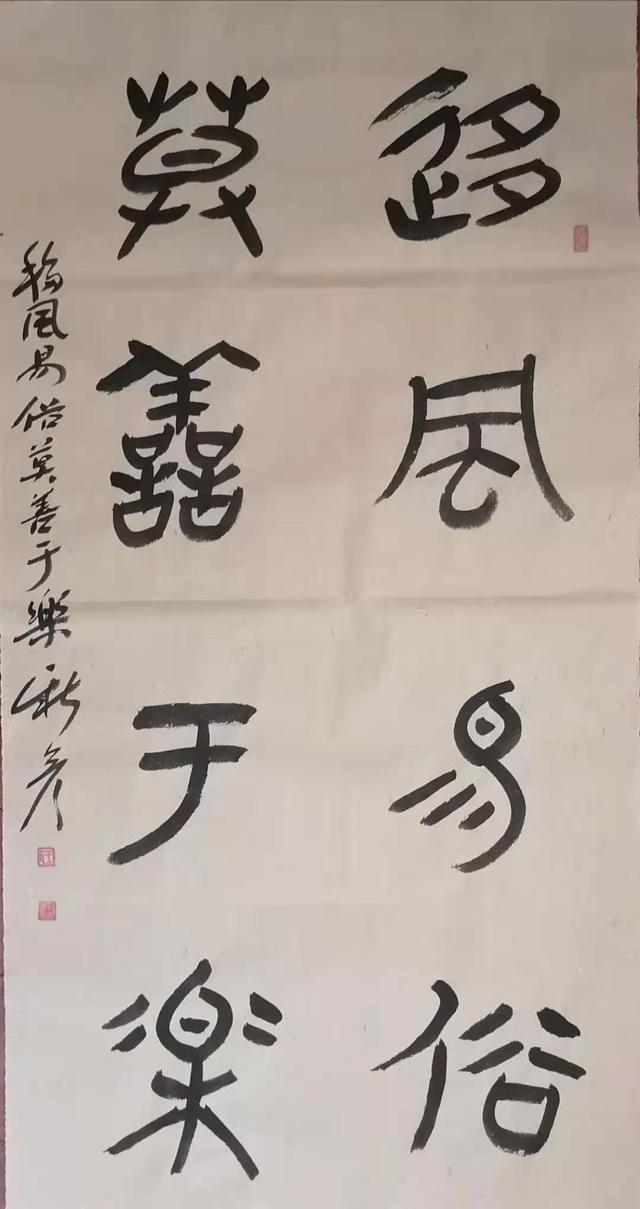 移风易俗
莫善于樂
移风易俗莫善于樂